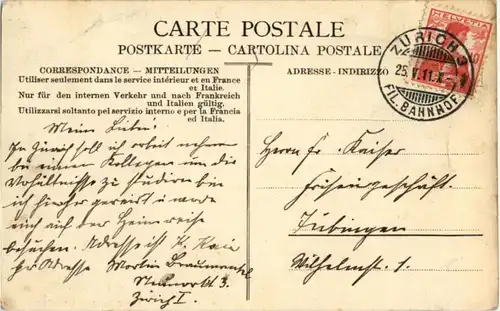 CARTE POSTALE
POSTKARTE – CARTOLINA POSTALE
CORRESPONDANCE – MITTEILUNGEN
Utiliser seulement dans le service intérieur et en France
et Italie.
Nur für den internen Verkehr und nach Frankreich
und Italien gültig.
Utilizzarsi soltanto pel servizio interno e per la Francia
ed Italia.
ADRESSE-INDIRIZZO
HELVETIA
ZÜRICH 3
25.V.11.X
FIL. BAHNHOF
Mein Lieber!
In Zürich soll ich
bei einem Kollegen um die
Verhältnisse zu studieren bin
ich hierher gereist u werde
euch auf der Heimreise
besuchen. Adresse ist
Adresse Martin
3.
Zürich I.
Herrn Fr. Kaiser
Friseurgeschäft.
Tübingen
Wilhelmst. 1.